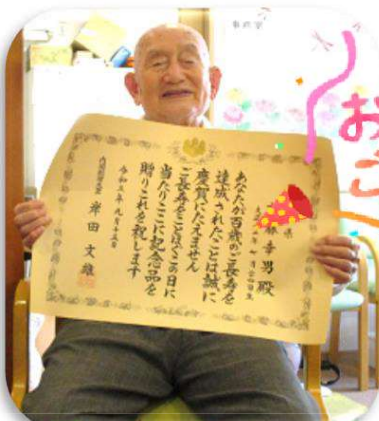 事務室
お
ご
県
幸男殿
あなたが百歳のご長寿を
達成されたことは誠に
慶賀にたえません
ご長寿をことほぐこの日に
当たりここに記念品を
贈りこれを祝します
令和五年九月十五日
内閣総理大臣 岸田文雄